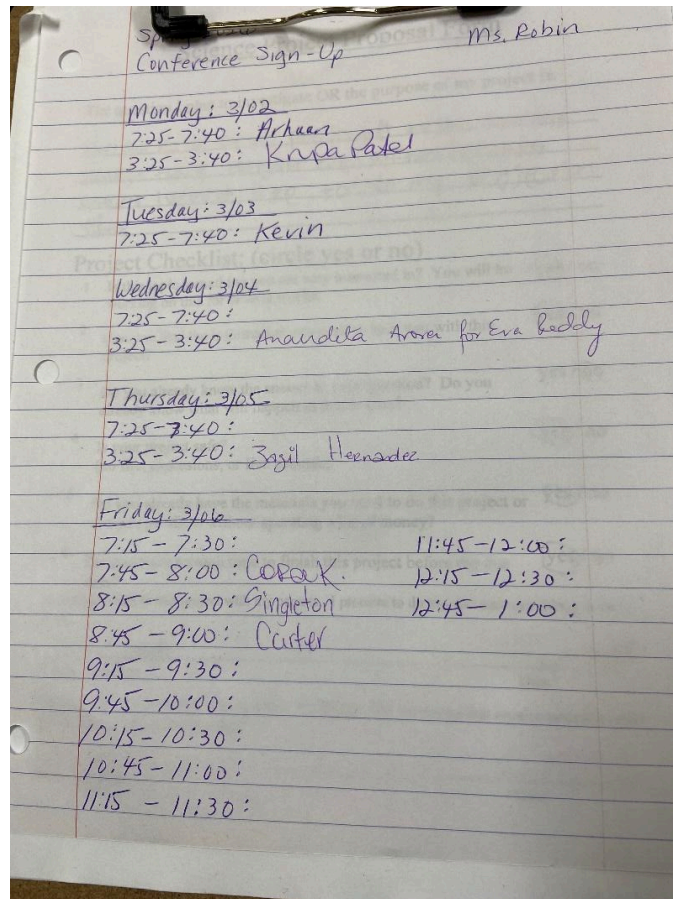 Ms. Robin
Conference Sign-Up
Monday: 3/02
7:25-7:40: Arhaan
3:25-3:40: Krupa Patel
Tuesday: 3/03
7:25-7:40: Kevin
Wednesday: 3/04
7:25-7:40:
3:25-3:40: Anandita Arora for Eva Reddy
Thursday: 3/05
7:25-7:40:
3:25-3:40: Hernandez
Friday: 3/06
7:15-7:30:
7:45-8:00:
8:15-8:30: Singleton
8:45-9:00: Carter
9:15-9:30:
9:45-10:00:
10:15-10:30:
10:45-11:00:
11:15-11:30:
11:45-12:00:
12:15-12:30:
12:45-1:00:
Project Checklist: (circle yes or no)